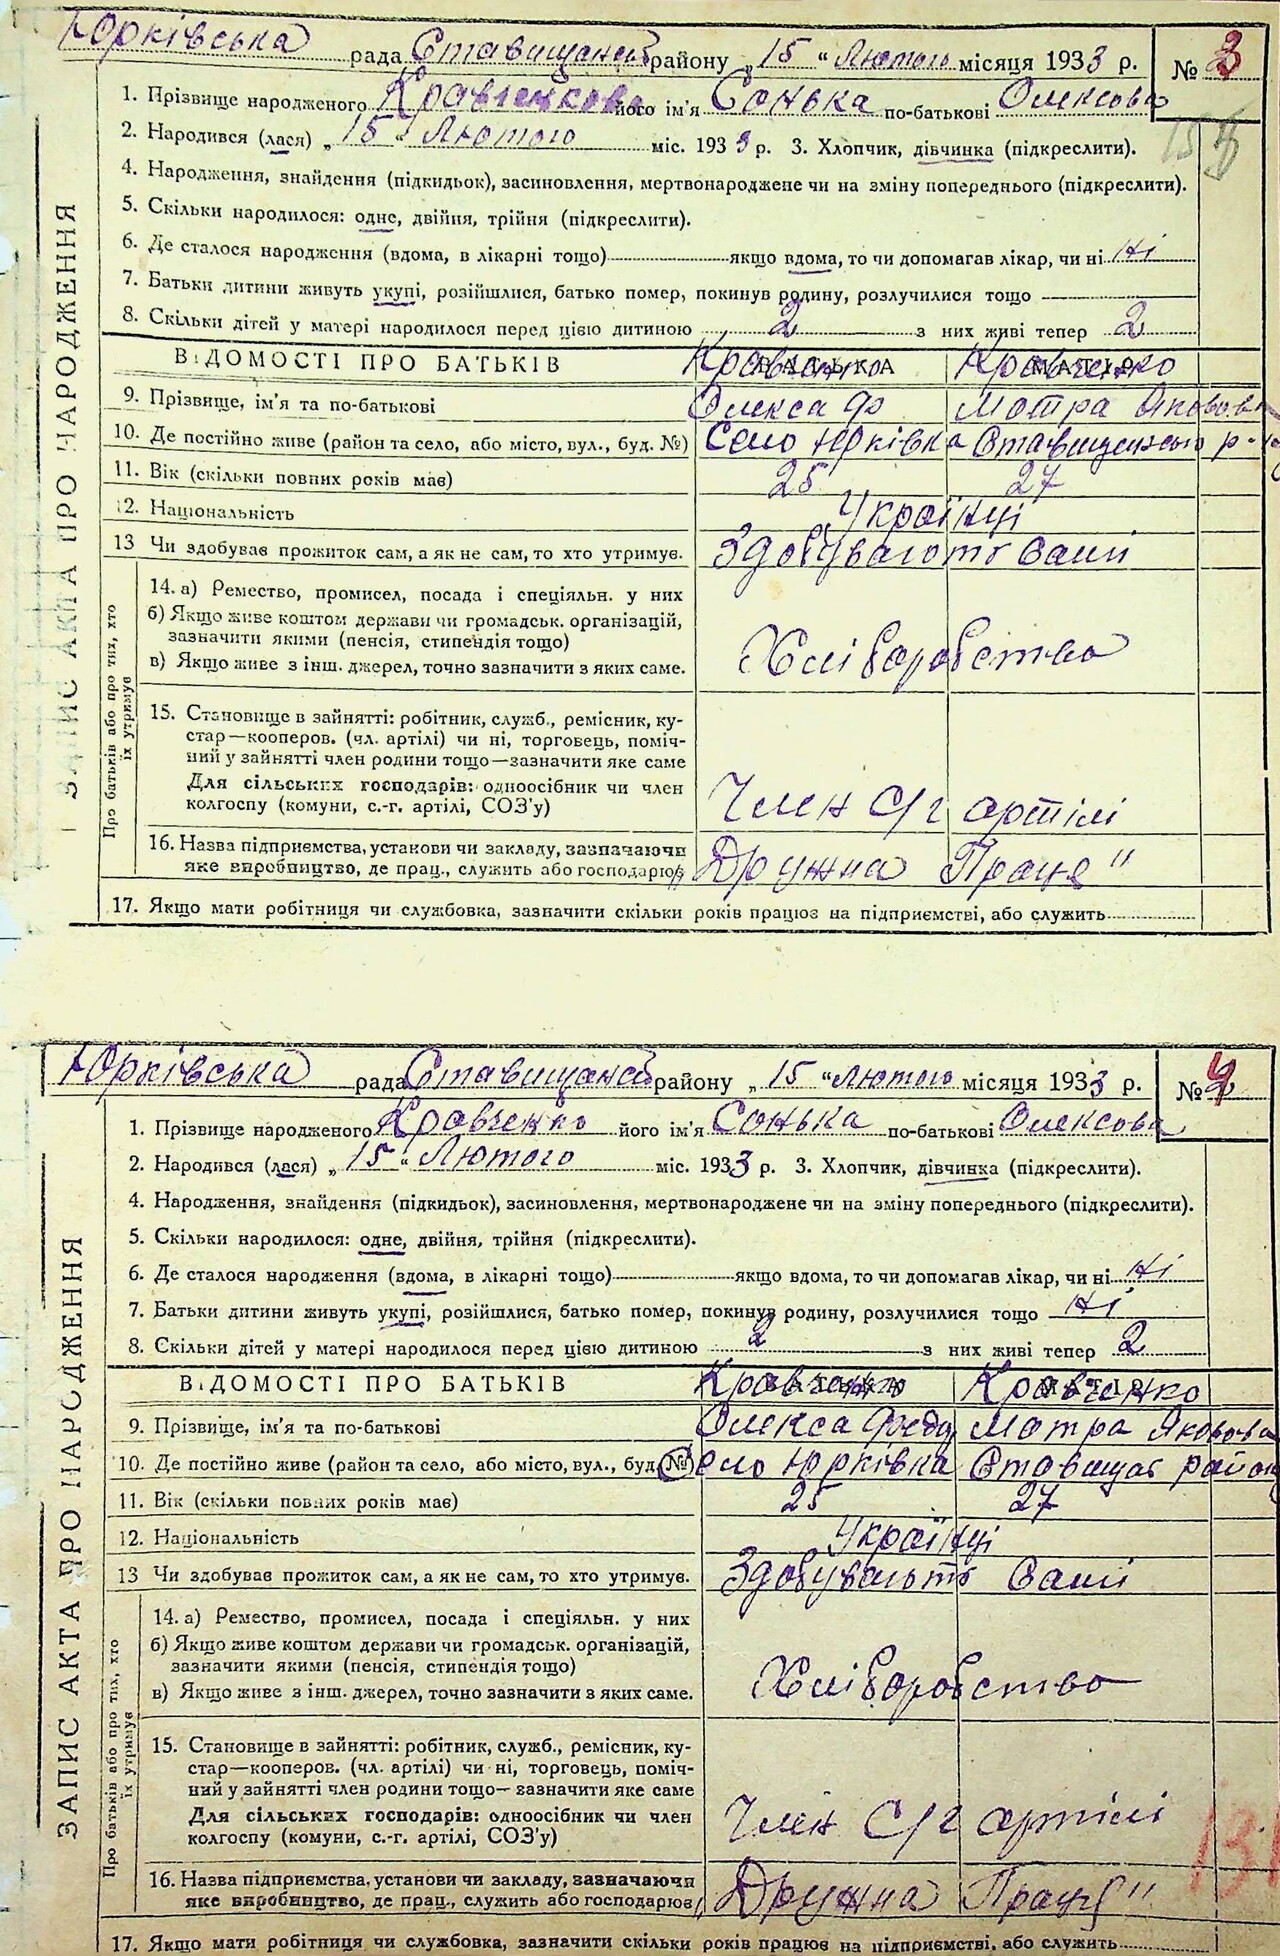 Юрківська рада Ставищанськ району „ 15 “ Лютого місяця 1933 р. № 3
1. Прізвище народженого Кравченкова його ім'я Сонька по-батькові Олексова
2. Народився (лася) „ 15 “ Лютого міс. 1933 р. 3. Хлопчик, дівчинка (підкреслити).
4. Народження, знайдення (підкидьок), засиновлення, мертвонароджене чи на зміну попереднього (підкреслити).
5. Скільки народилося: одне, двійня, трійня (підкреслити).
6. Де сталося народження (вдома, в лікарні тощо) якщо вдома, то чи допомагав лікар, чи ні Ні
7. Батьки дитини живуть укупі, розійшлися, батько помер, покинув родину, розлучилися тощо
8. Скільки дітей у матері народилося перед цією дитиною 2 з них живі тепер 2
ВІДОМОСТІ ПРО БАТЬКІВ БАТЬКА Кравченко МАТІР Кравченко
9. Прізвище, ім'я та по-батькові Олекса Фе Мотра Яковова
10. Де постійно живе (район та село, або місто, вул., буд. №) Село Юрківка Ставищенсього р-
11. Вік (скільки повних років має) 25 27
12. Національність Українці
13 Чи здобував прожиток сам, а як не сам, то хто утримує. Здобувають Самі
14. а) Ремество, промисел, посада і спеціяльн. у них
б) Якщо живе коштом держави чи громадськ. організацій,
зазначити якими (пенсія, стипендія тощо)
в) Якщо живе з інш. джерел, точно зазначити з яких саме.
Хліборобство
15. Становище в зайнятті: робітник, служб., ремісник, ку-
стар—кооперов. (чл. артілі) чи ні, торговець, поміч-
ний у зайнятті член родини тощо—зазначити яке саме
Для сільських господарів: одноосібник чи член
колгоспу (комуни, с.-г. артілі, СОЗ'у) Член С/г артілі
16. Назва підприємства, установи чи закладу, зазначаючи
яке виробництво, де прац., служить або господарює „Дружна Праця"
17. Якщо мати робітниця чи службовка, зазначити скільки років працює на підприємстві, або служить
ЗАПИС АКТА ПРО НАРОДЖЕННЯ
Про батьків або про тих, хто
їх утримує
Юрківська рада Ставищанськ району „ 15 “ Лютого місяця 1933 р. № 4
1. Прізвище народженого Кравченко його ім'я Сонька по-батькові Олексова
2. Народився (лася) „ 15 “ Лютого міс. 1933 р. 3. Хлопчик, дівчинка (підкреслити).
4. Народження, знайдення (підкидьок), засиновлення, мертвонароджене чи на зміну попереднього (підкреслити).
5. Скільки народилося: одне, двійня, трійня (підкреслити).
6. Де сталося народження (вдома, в лікарні тощо) якщо вдома, то чи допомагав лікар, чи ні Ні
7. Батьки дитини живуть укупі, розійшлися, батько помер, покинув родину, розлучилися тощо Ні
8. Скільки дітей у матері народилося перед цією дитиною 2 з них живі тепер 2
ВІДОМОСТІ ПРО БАТЬКІВ БАТЬКА Кравченко МАТІР Кравченко
9. Прізвище, ім'я та по-батькові Олекса Федо Мотра Яковова
10. Де постійно живе (район та село, або місто, вул., буд. №) Село Юрківка Ставищас району
11. Вік (скільки повних років має) 25 27
12. Національність Українці
13 Чи здобував прожиток сам, а як не сам, то хто утримує. Здобувають Самі
14. а) Ремество, промисел, посада і спеціяльн. у них
б) Якщо живе коштом держави чи громадськ. організацій,
зазначити якими (пенсія, стипендія тощо)
в) Якщо живе з інш. джерел, точно зазначити з яких саме.
Хліборобство
15. Становище в зайнятті: робітник, служб., ремісник, ку-
стар—кооперов. (чл. артілі) чи ні, торговець, поміч-
ний у зайнятті член родини тощо—зазначити яке саме
Для сільських господарів: одноосібник чи член
колгоспу (комуни, с.-г. артілі, СОЗ'у) Член С/г артілі
16. Назва підприємства, установи чи закладу, зазначаючи
яке виробництво, де прац., служить або господарює „Дружна Праця"
17. Якщо мати робітниця чи службовка, зазначити скільки років працює на підприємстві, або служить
ЗАПИС АКТА ПРО НАРОДЖЕННЯ
Про батьків або про тих, хто
їх утримує